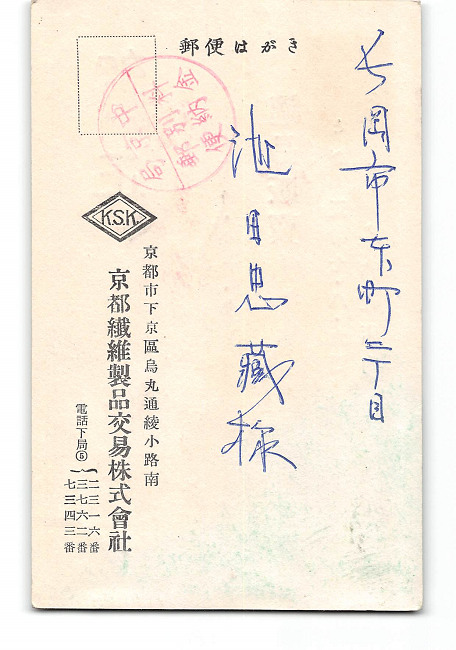 郵便はがき
長岡市東町二丁目
池田恵藏様
料金別納郵便
K.S.K.
京都市下京區烏丸通綾小路南
京都纖維製品交易株式會社
電話下局⑤
二三一六番
三七六二番
七三四三番